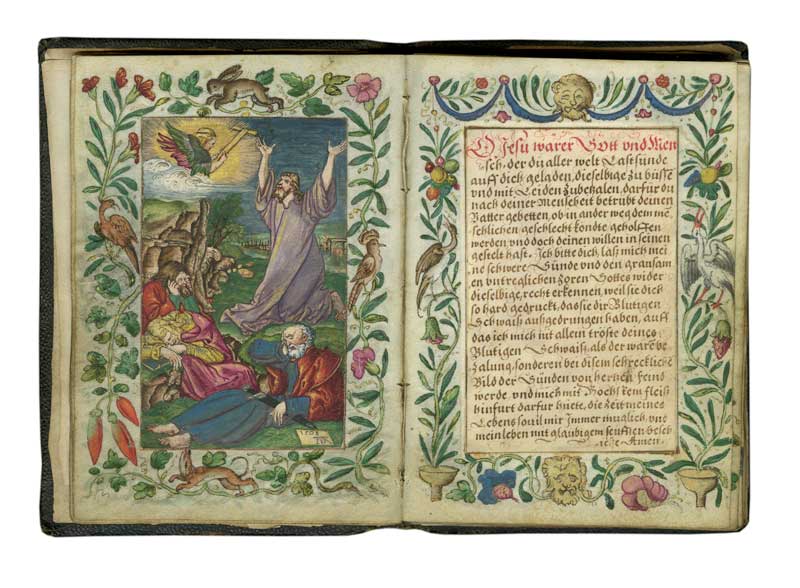 1508
AD
O Jesu warer Gott vnd Men
sch, der du aller welt Last sünde
auff dich geladen, dieselbige zu büsse
vnd mit Leiden zubetzalen, darfür du
nach deiner Menscheit betrübt deinen
Vatter gebetten, ob in ander weg dem mē
schlichen geschlecht kondte geholffen
werden, vnd doch deinen willen in seinen
gestelt hast. Ich bitte dich, laß mich mei
ne schwere Sünde vnd den grausam
en vntreglichen zoren Gottes wider
dieselbige, recht erkennen, weil sie dich
so hard gedruckt, das sie dir Blutigen
Schwaiß außgedrungen haben, auff
das ich mich mit allem tröste deines
Blutigen Schwaiß, als der ware be
zalung, sonderen bei disem schreckliche
Bild der Sünden von hertzen feind
werde, vnd mich mit Hochstem fleiß
hinfurt darfur hüete, die zeit meines
Lebens souil mir Immer müglich, vnd
mein leben mit glaübigem seufftzen besch
Amen.